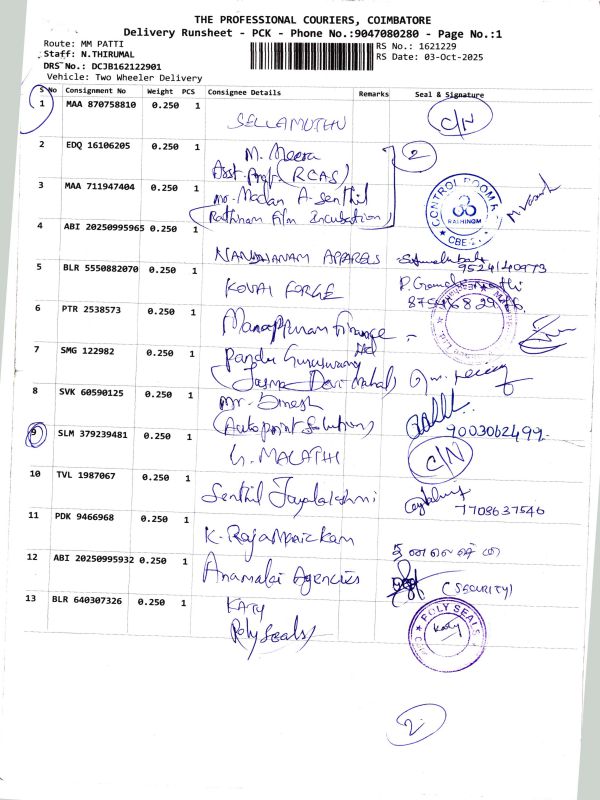 THE PROFESSIONAL COURIERS, COIMBATORE
Delivery Runsheet - PCK - Phone No.:9047080280 - Page No.:1
Route: MM PATTI
RS No.: 1621229
Staff: N.THIRUMAL
RS Date: 03-Oct-2025
DRS No.: DCJB162122901
Vehicle: Two Wheeler Delivery
S No Consignment No Weight PCS Consignee Details Remarks Seal & Signature
1 MAA 870758810 0.250 1
SELLAMUTHU C/N
2 EDQ 16106205 0.250 1
M. Meera 2
Asst. Prof (RCAS)
3 MAA 711947404 0.250 1
Mr. Madan A. Senthil
(Rathinam Film Incubation)
CONTROL ROOM
RATHINAM
CBE
4 ABI 20250995965 0.250 1
NANDHANAM APPARELS
9524140973
5 BLR 5550882070 0.250 1
KOVAI FORGE
6 PTR 2538573 0.250 1
Manappuram Finance
Ltd
7 SMG 122982 0.250 1
Pandu Guruswamy
(Jasma Devi Mahal)
8 SVK 60590125 0.250 1
Mr. Dinesh
(Autopoint Solutions)
9003062499
9 SLM 379239481 0.250 1
G. MALATHI C/N
10 TVL 1987067 0.250 1
Senthil Jayalakshmi
7708637546
11 PDK 9466968 0.250 1
K. Rajamanickam
12 ABI 20250995932 0.250 1
Anamalai Agencies (SECURITY)
13 BLR 640307326 0.250 1
KATY
Poly Seals
POLY SEALS
Katy
2